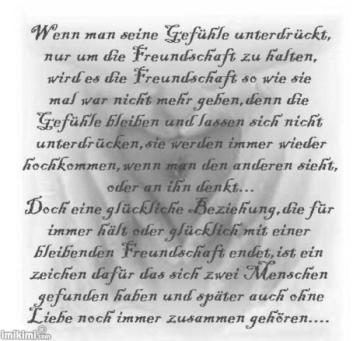 Wenn man seine Gefühle unterdrückt,
nur um die Freundschaft zu halten,
wird es die Freundschaft so wie sie
mal war nicht mehr geben,denn die
Gefühle bleiben und lassen sich nicht
unterdrücken,sie werden immer wieder
hochkommen,wenn man den anderen sieht,
oder an ihn denkt...
Doch eine glückliche Beziehung,die für
immer hält oder glücklich mit einer
bleibenden Freundschaft endet,ist ein
zeichen dafür das sich zwei Menschen
gefunden haben und später auch ohne
Liebe noch immer zusammen gehören....
imikimi.com